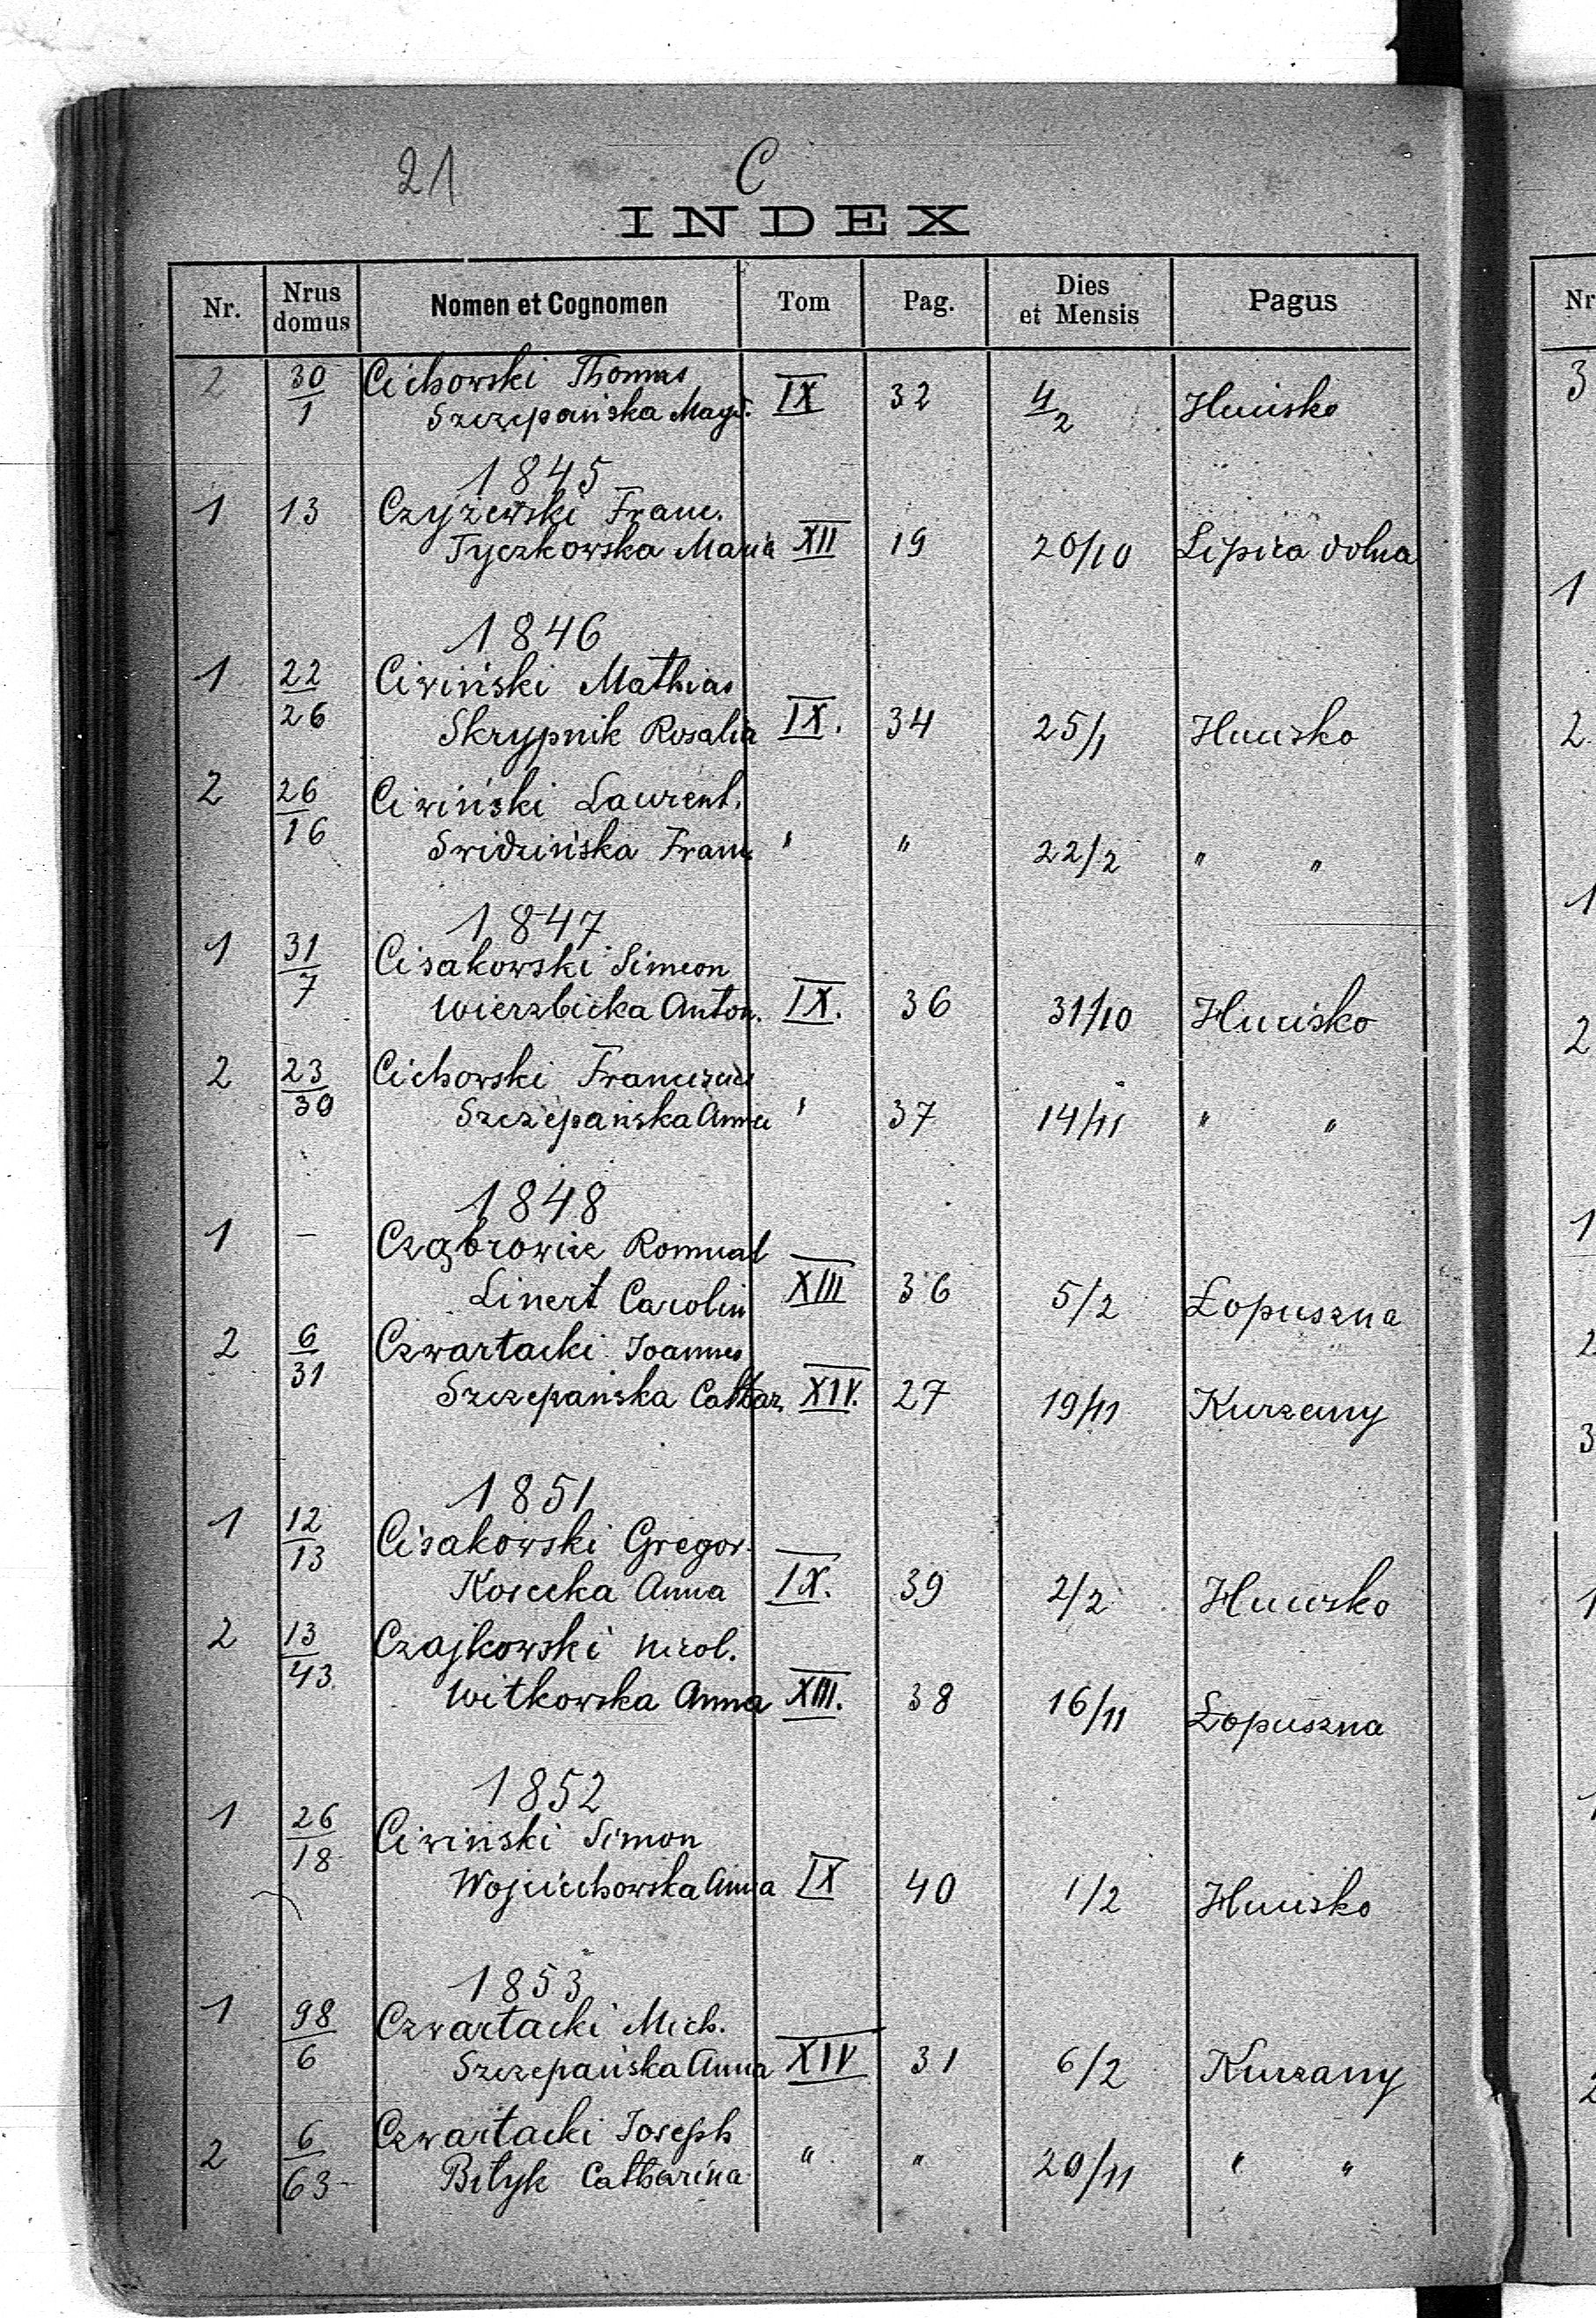 21 C
INDEX
Nr. Nrus domus Nomen et Cognomen Tom Pag. Dies et Mensis Pagus
2 30/1 Cichowski Thomas
Szczepańska Magd. IX 32 4/2 Hucisko
1845
1 13 Czyżewski Franc.
Tyczkowska Maria XII 19 20/10 Lipica dolna
1846
1 22/26 Ciwiński Mathias
Skrypnik Rosalia IX. 34 25/1 Hucisko
2 26/16 Ciwiński Laurent.
Swidzińska Franc. " " 22/2 " "
1847
1 31/7 Cisakowski Simeon
Wierzbicka Anton. IX. 36 31/10 Hucisko
2 23/30 Cichowski Franciscus
Szczepańska Anna " 37 14/11 " "
1848
1 – Cząbrowicz Romual
Linert Carolin XIII 36 5/2 Łopuszna
2 6/31 Czwartacki Joannes
Szczepańska Cathar. XIV. 27 19/11 Kurzany
1851
1 12/13 Cisakowski Gregor.
Kosecka Anna IX. 39 2/2 Hucisko
2 13/43 Czajkowski Nicol.
Witkowska Anna XIII. 38 16/11 Łopuszna
1852
1 26/18 Ciwiński Simon
Wojciechowska Anna IX 40 1/2 Hucisko
1853
1 98/6 Czwartacki Mich.
Szczepańska Anna XIV 31 6/2 Kurzany
2 6/63 Czwartacki Joseph
Bityk Catharina " " 20/11 " "
Nr
3
1
2
1
2
1
2
3
1
1
2